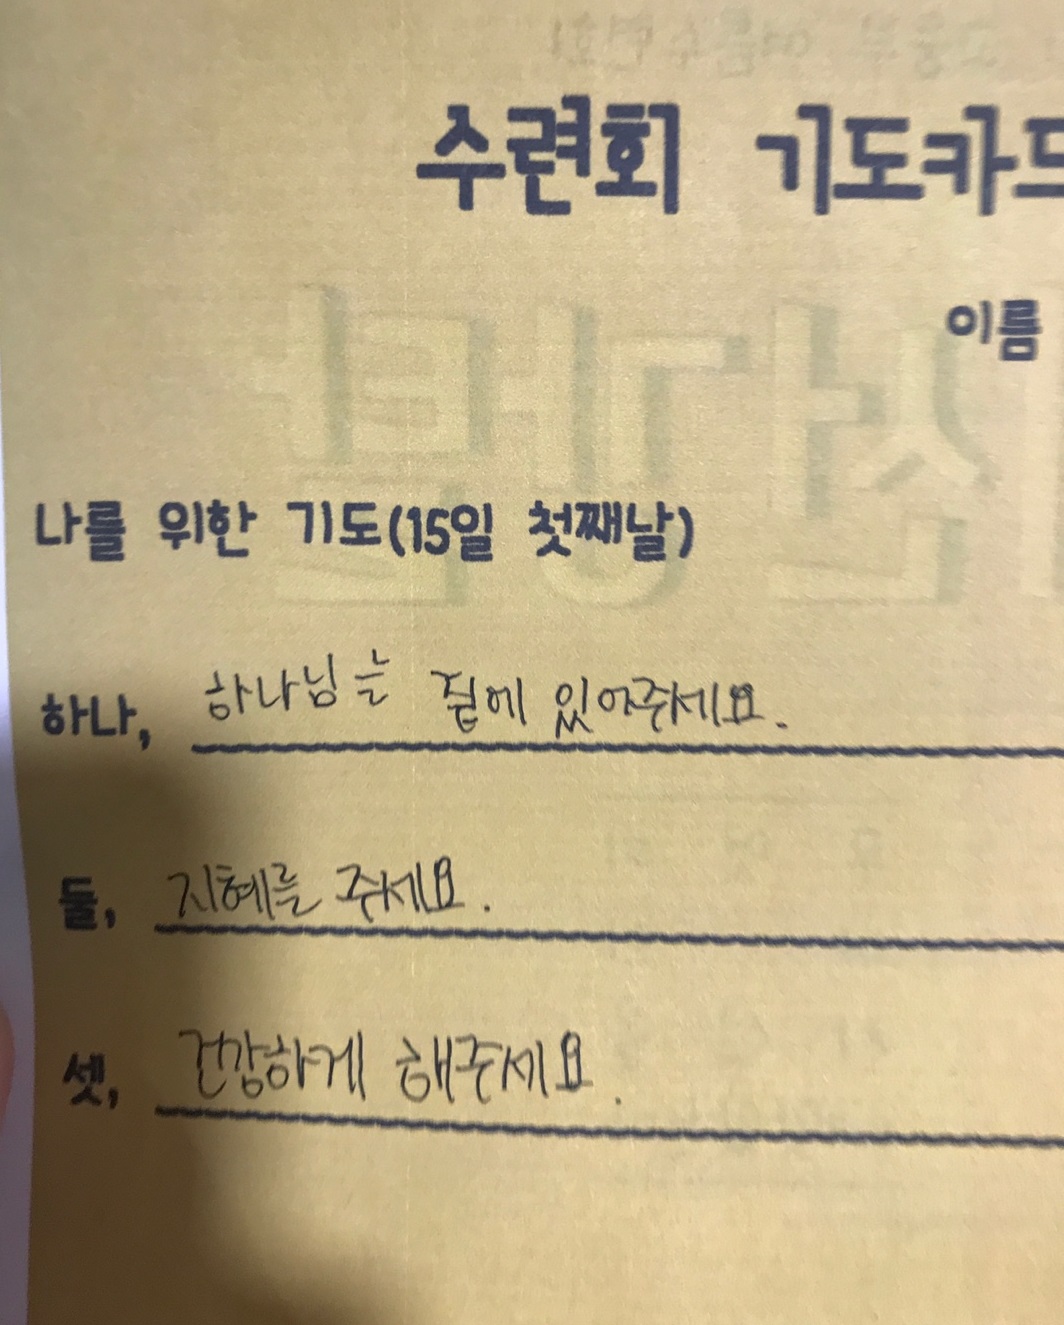 수련회 기도카드
이름
나를 위한 기도(15일 첫째날)
하나, 하나님 늘 곁에 있어주세요.
둘, 지혜를 주세요.
셋, 건강하게 해주세요.